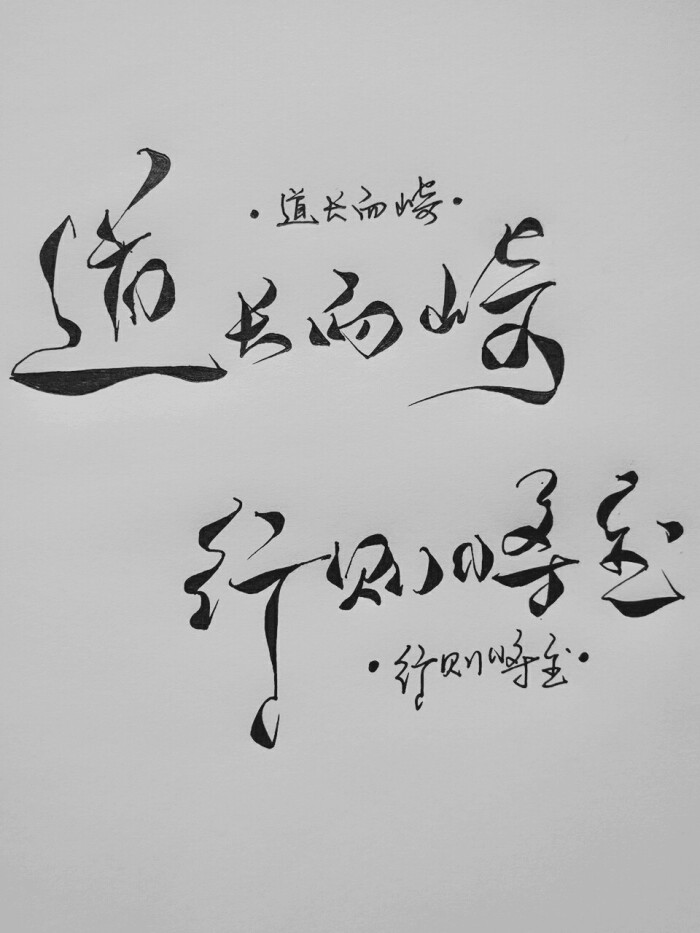 ·道长而崎·
道长而崎
行则将至
·行则将至·